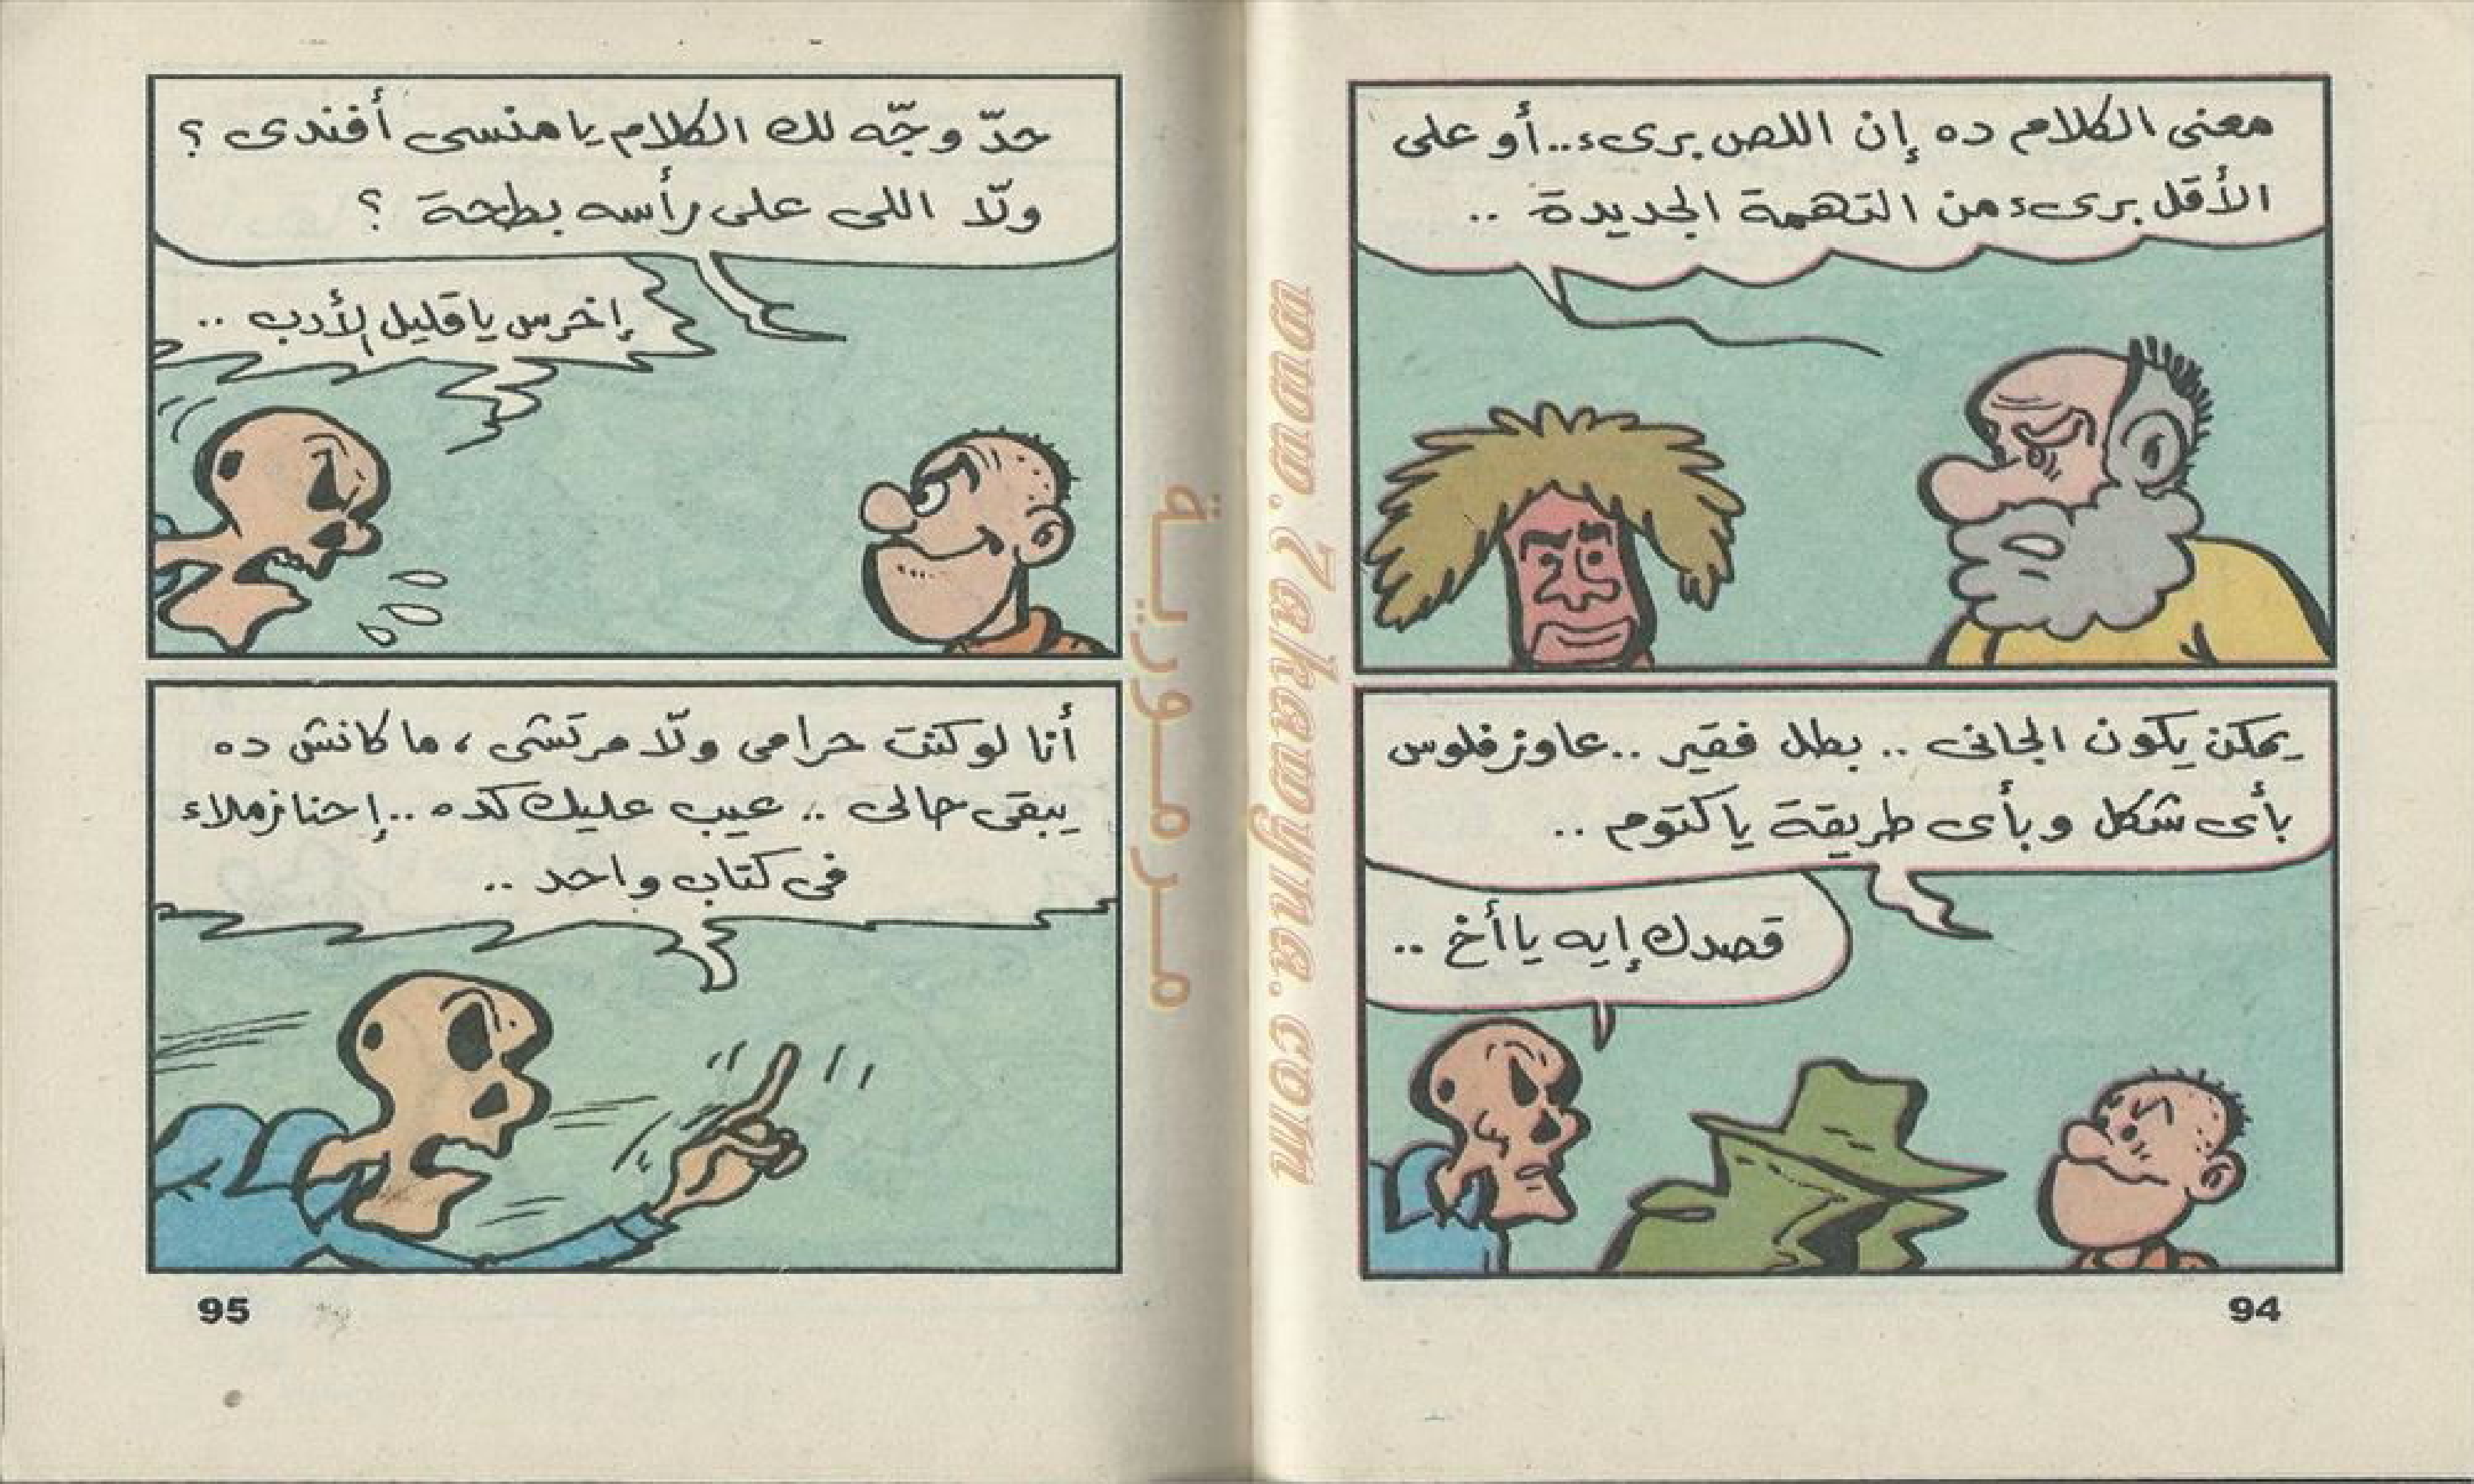 معنى الكلام ده إن اللص برىء..أو على
الأقل برىء من التهمة الجديدة ..
يمكن يكون الجانى .. بطل فقير ..عاوز فلوس
بأى شكل وبأى طريقة يا كتوم ..
قصدك إيه يا أخ ..
94
حدّ وجّه لك الكلام يا منسى أفندى ؟
ولّا اللى على رأسه بطحة ؟
إخرس يا قليل الأدب ..
أنا لو كنت حرامى ولّا مرتشى ، ما كانش ده
يبقى حالى .. عيب عليك كده ..إحنا زملاء
فى كتاب واحد ..
95
مرمورية
www.7akawyna.com